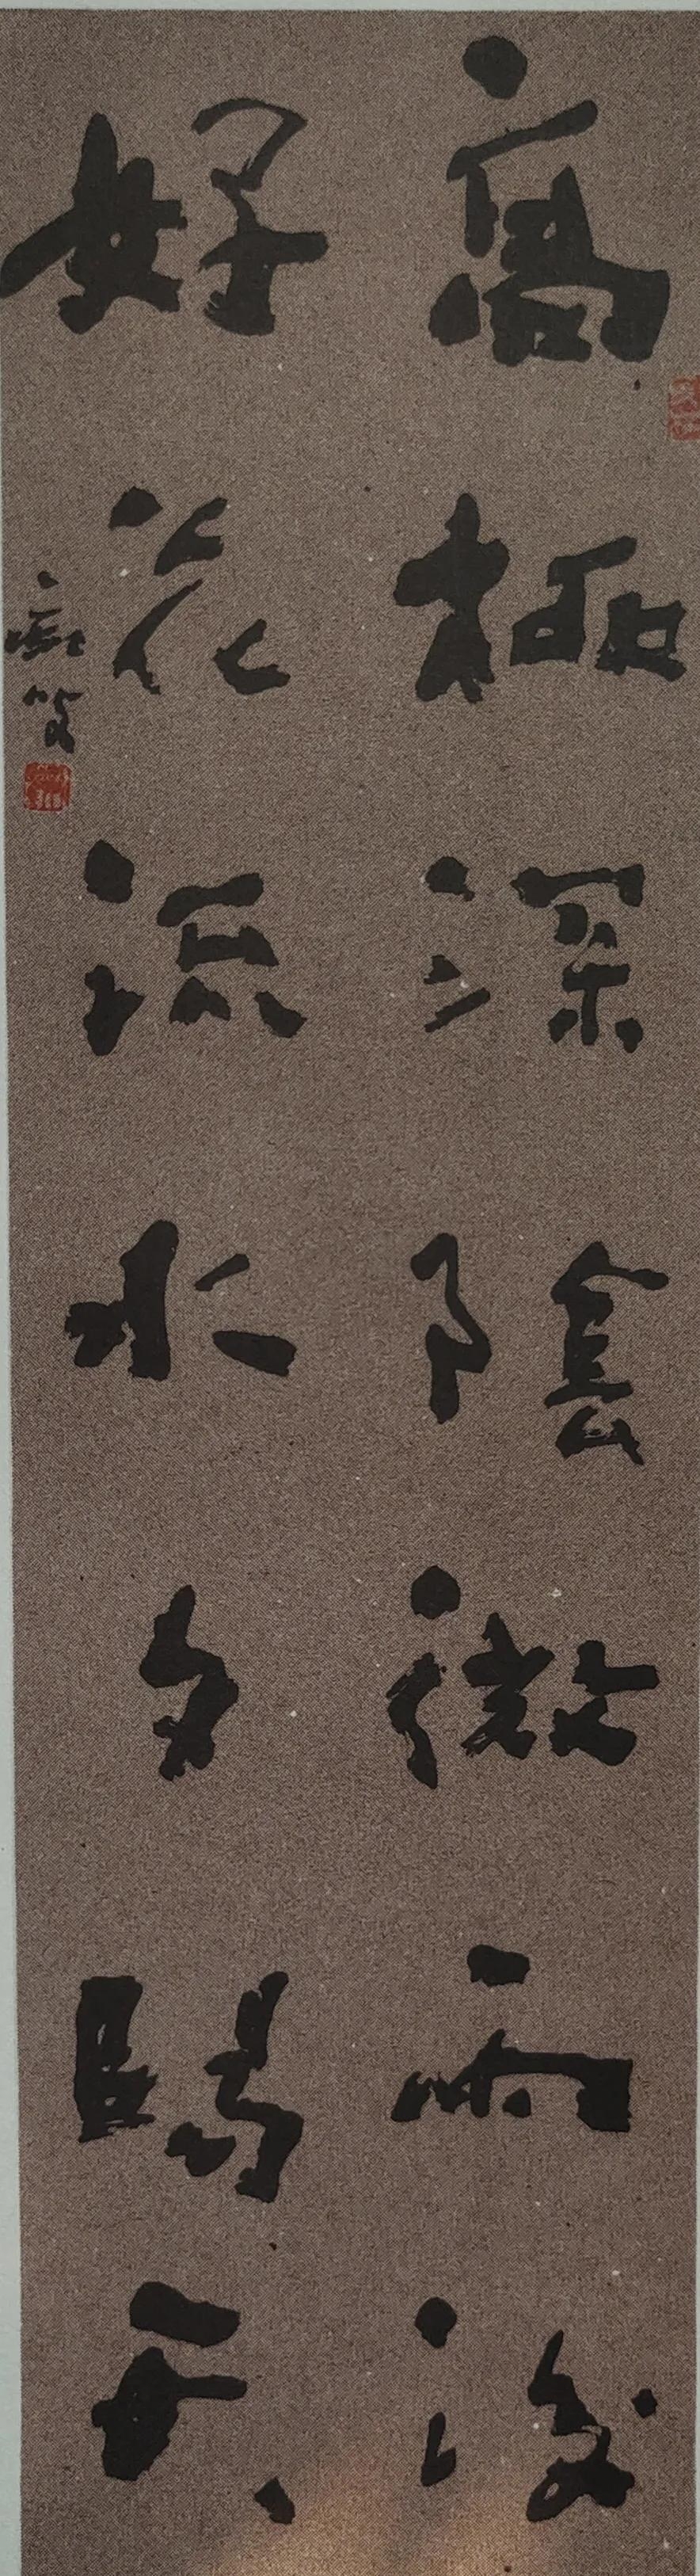 高柳深陰微雨後
好花流水夕陽天